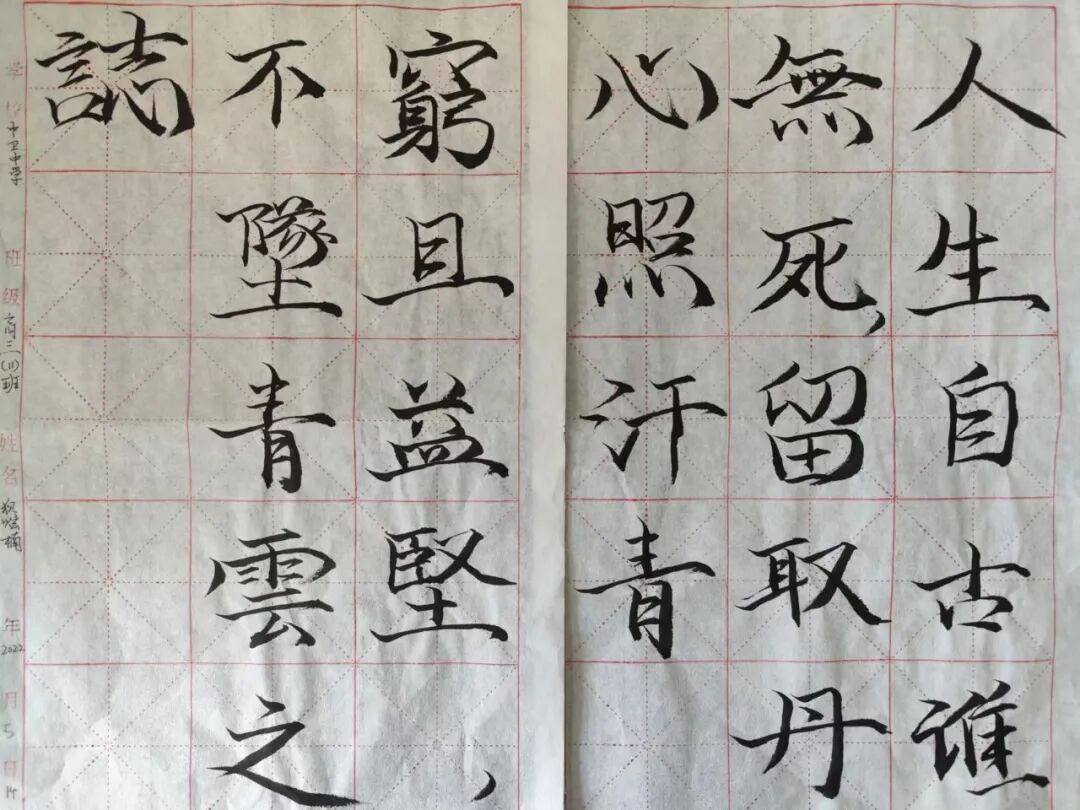 人生自古谁
無死，留取丹
心照汗青
窮且益堅，
不墜青雲之
誌
学校 中卫中学
班级 高二(11)班
姓名
年 2022 月 5 日 14